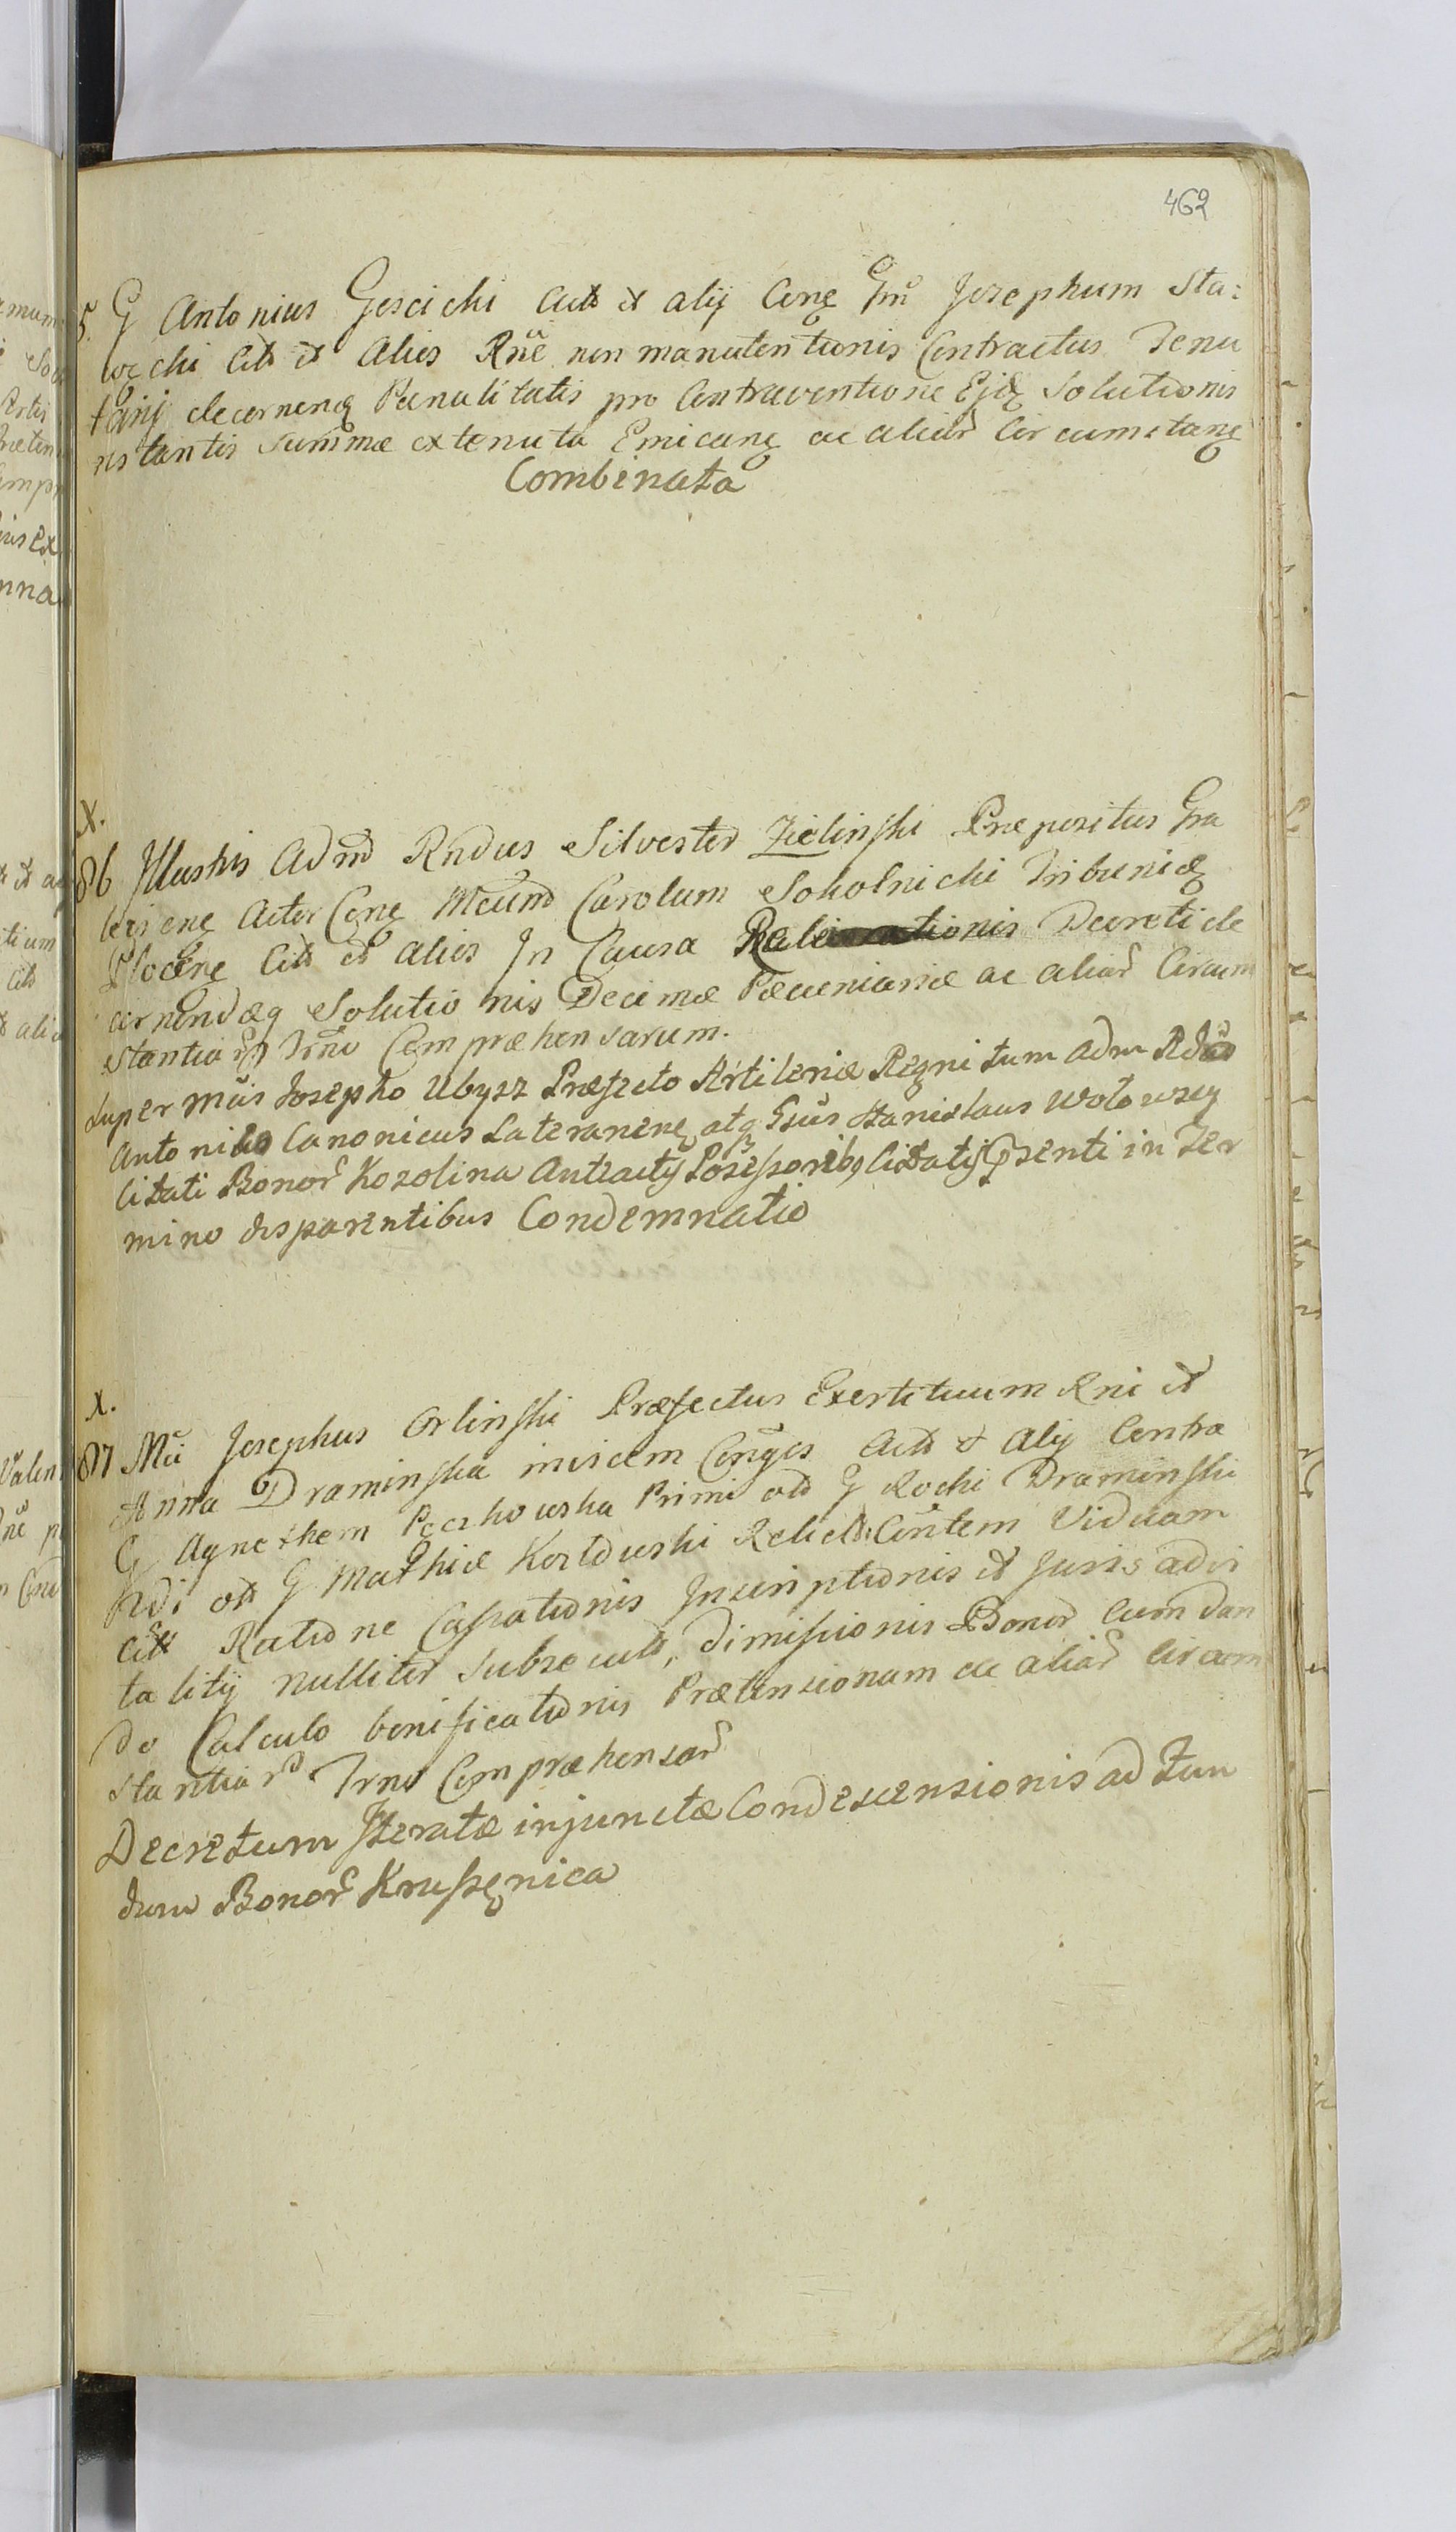 462
5. G Antonius Gościcki Actr et alij Conę Gm Josephum Sta:
wecki Citt et Alios Rne non manutentionis Contractus Tenu
tarij decernenę Penalitatis pro Contraventione Ejdę Solutionis
restantis Summæ ex tenuta Emicanę ac aliar Circumstanę
Combinata
X.
86 Illustris Adm Rndus Silvester Zielinski Præpositus Gra
Actor Conę Mcum Carolum Sokolnicki Tribunidę
Plocenę Citt et alios In Causa Decreti de
cernendæq Solutionis Decimæ Pæcuniariæ ac aliar Circum
stantiar Trno Compræhensarum.
Super Mcis Josepho Ubysz Præfecto Artileriæ Regni tum Adm Rdus
Antonius Canonicus Lateranenę atq Gsus Stanislaus Wotowscy
Citati Bonor Kozolina Anteactis Possessorib9 Citatis psenti in Ter
mino disparentibus Condemnatio
X.
87 Mci Josephus Orlinski Præfectus Exertituum Rni et
Anna Draminska invicem Conges Actt et Alij Contra
G Agnethem Pczkowska Primi ott G Rochi Draminski
2di ott G Mathiæ Relictt Contem Viduam
Citt Ratione Cassationis Inscriptionis et Juris advi
talitij Nulliter Subsecutt, dimissionis Bonor Cum dan
do Calculo bonificationis Prætensionum ac aliar Circum
stantiar Trno Compræhensar
Decretum Iteratæ injunctæ Condescensionis ad Fun
dum Bonor Kruszenica